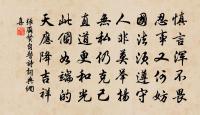 慎言渾不畏
忍事又何妨
國法須遵守
人非莫舉揚
無私仍克己
直道更和光
此個如端的
天應降吉祥
張齊賢自警詩詞典網
喜